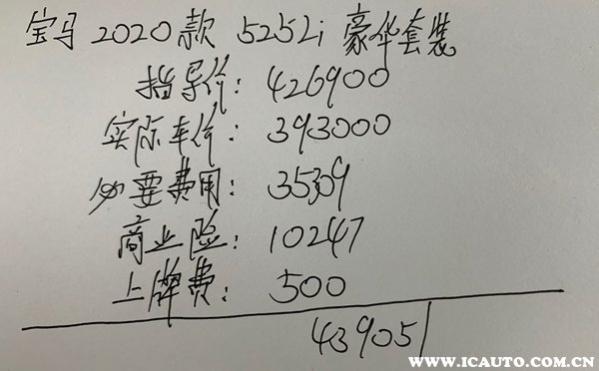 宝马 2020款 525Li 豪华套装
指导价: 426900
实际车价: 393000
必要费用: 35309
商业险: 10247
上牌费: 500
439051
WWW.ICAUTO.COM.CN